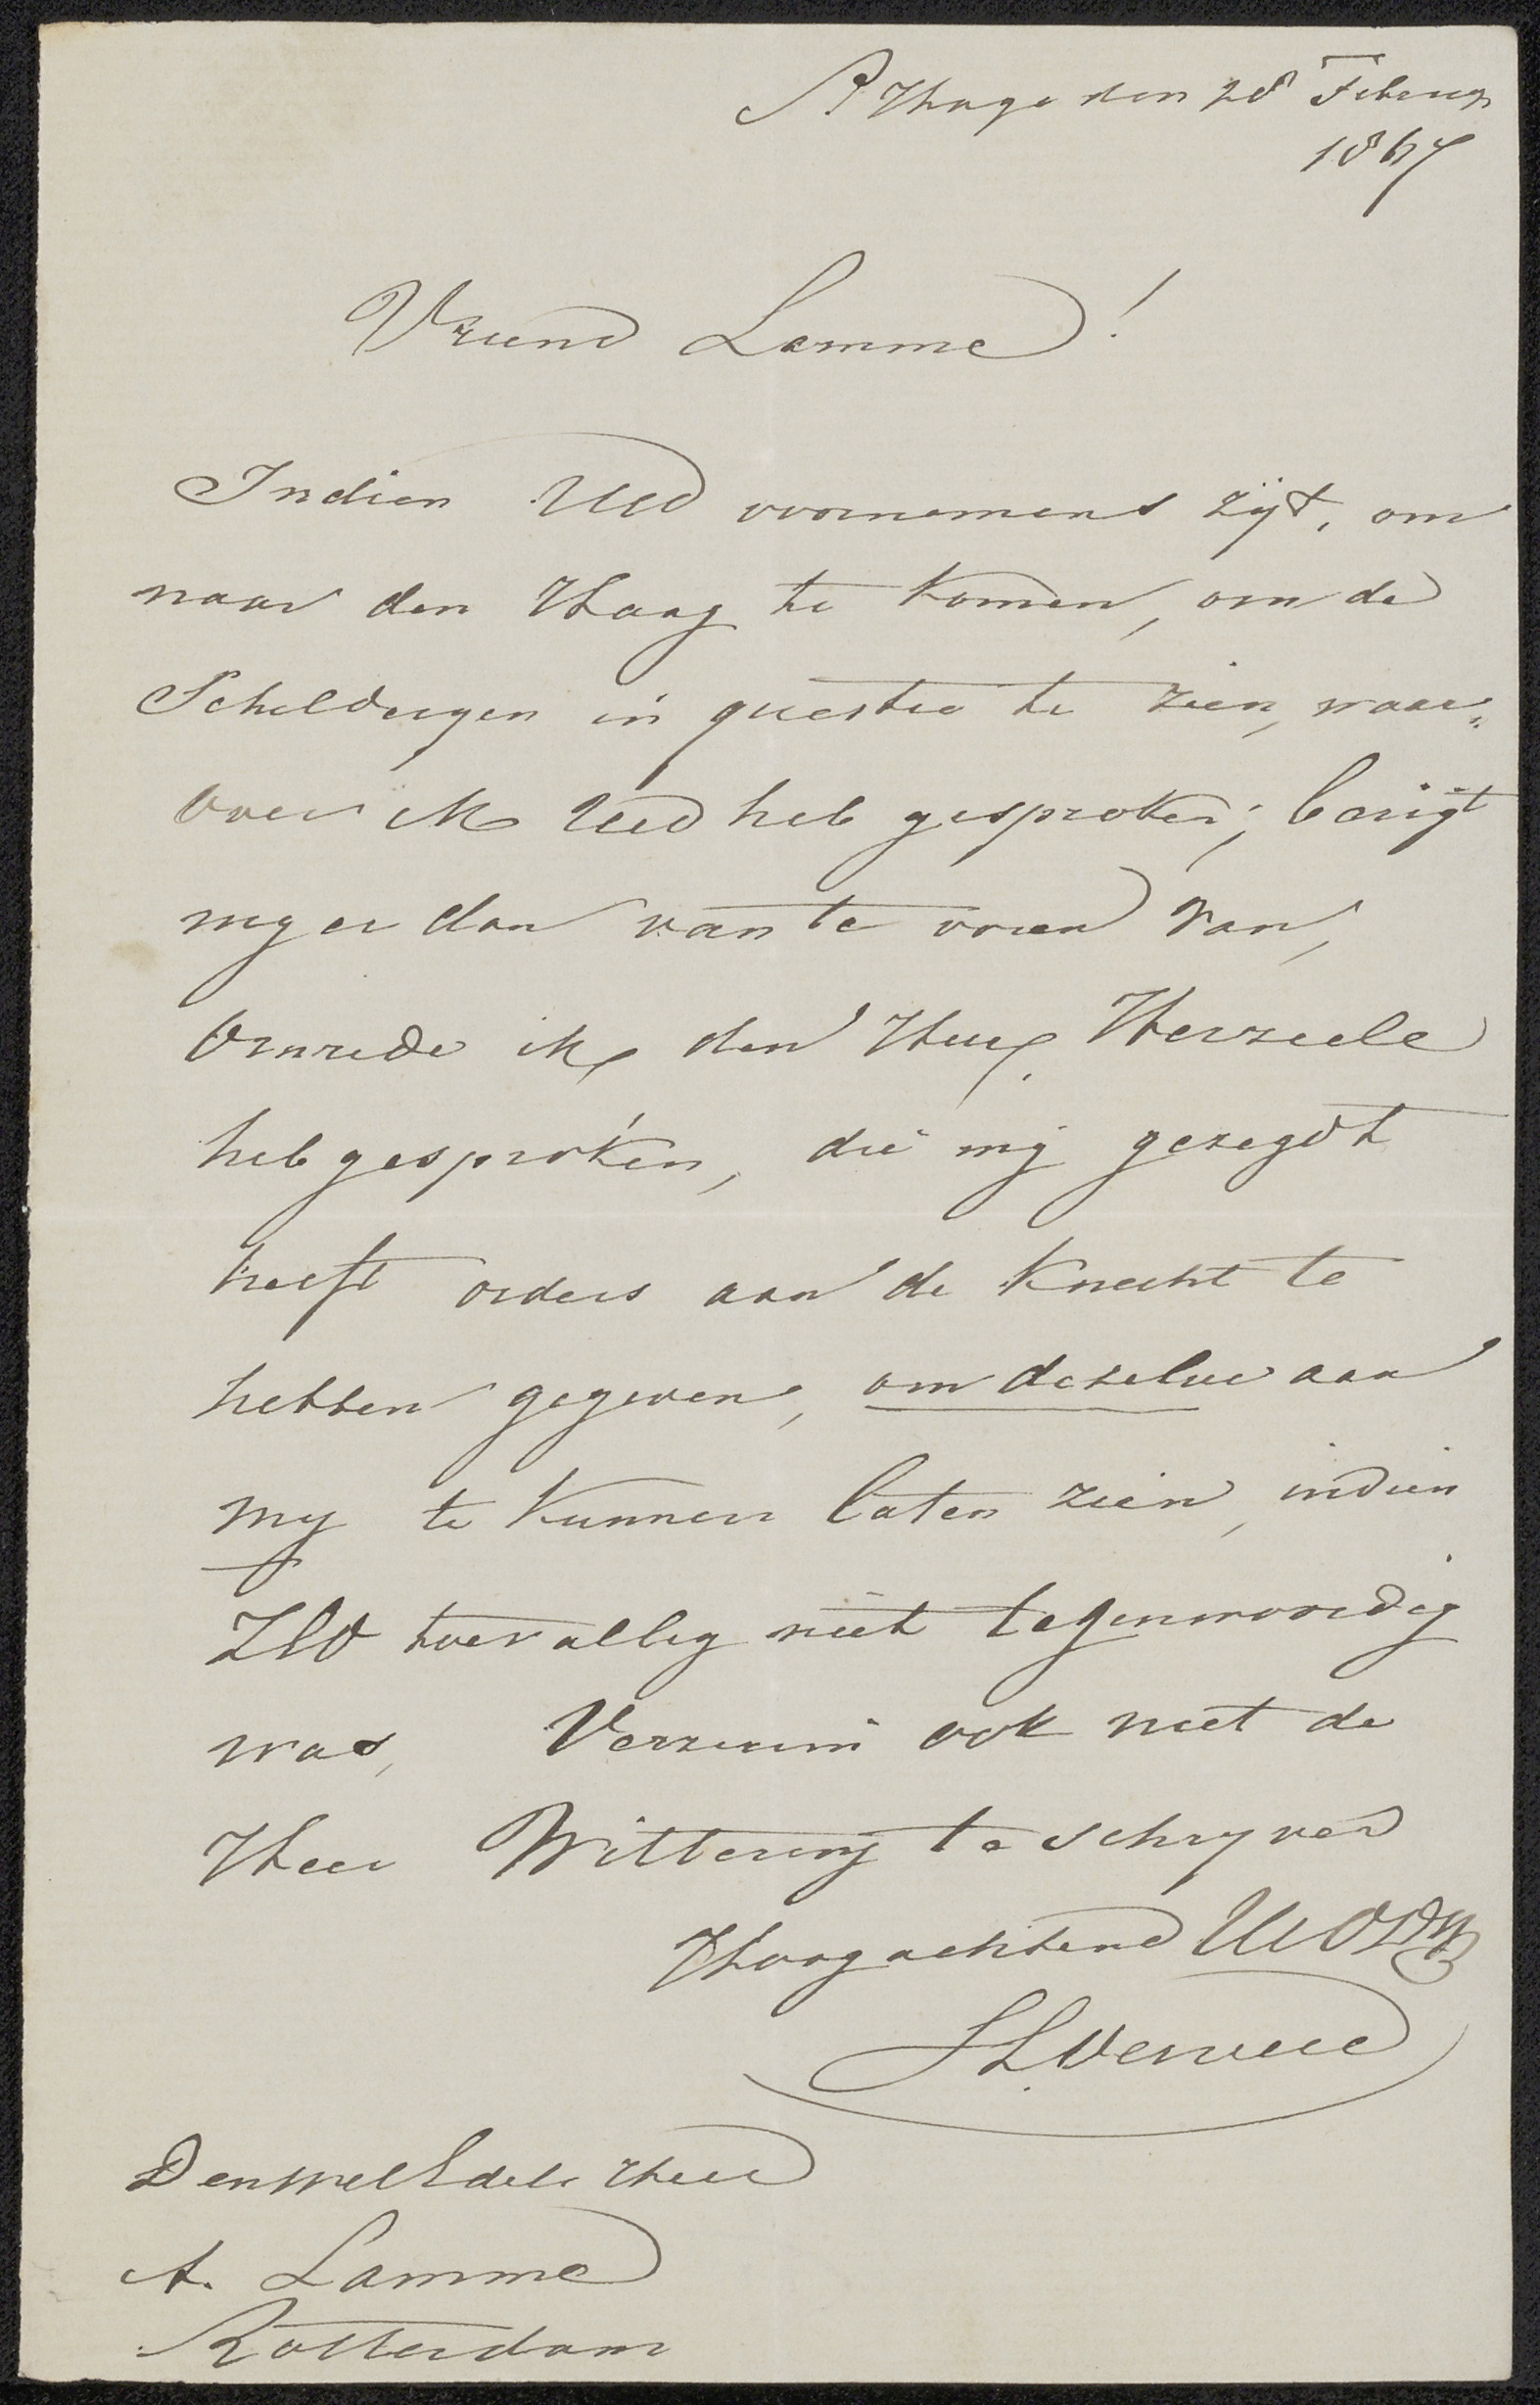 S Hage den 28 Februarij
1867
Vriend Lamme!
Indien UEd voornemens zijt, om
naar den Haag te komen, om de
Schilderyen in questie te zien, waar„
over ik UEd heb gesproken; berigt
my er dan van te voren van,
Omrede ik den Heer Herzeele
heb gesproken, die mij gezegdt
heeft orders aan de knecht te
hebben gegeven, om dezelve aan
my te kunnen laten zien, indien
ZEd toevallig niet tegenwoordig
was, Verzuim ook niet de
Heer Wittering te schryven
Hoogachtend UEdDW
S L Verveer
Den Wel Edele Heer
A. Lamme
Rotterdam